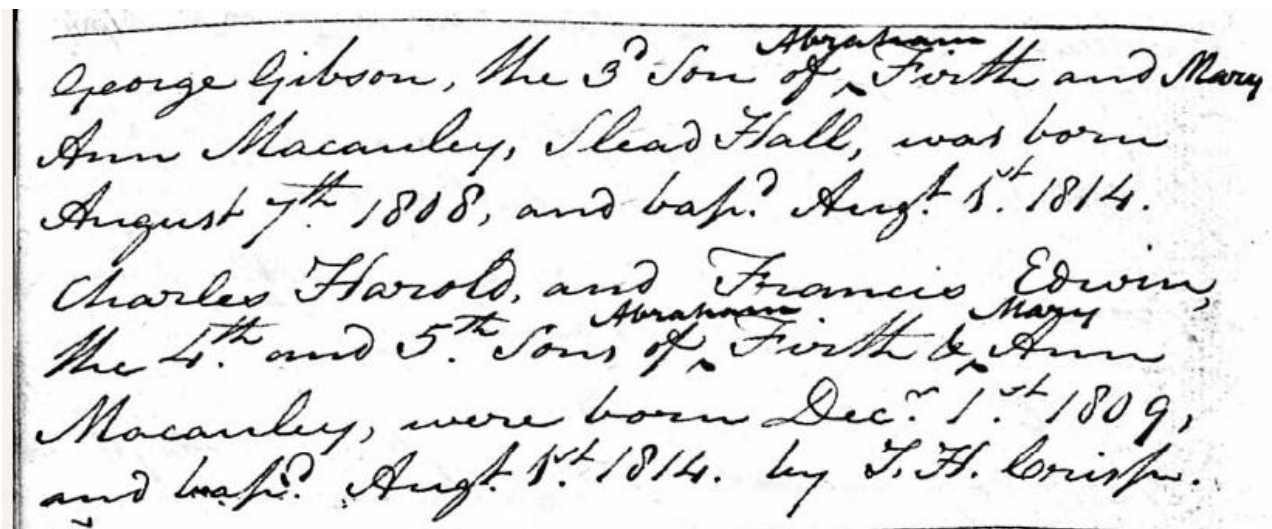 George Gibson, the 3d Son of ^Abraham Firth and Mary
Ann Macauley, Slead Hall, was born
August 7th 1808, and bapd. Augt. 1st. 1814.
Charles Harold, and Francis Edwin,
the 4th. and 5th. Sons of ^Abraham Firth & ^Mary Ann
Macauley, were born Decr. 1st. 1809,
and bapd. Augt. 1st. 1814. by T. H. Crisp.